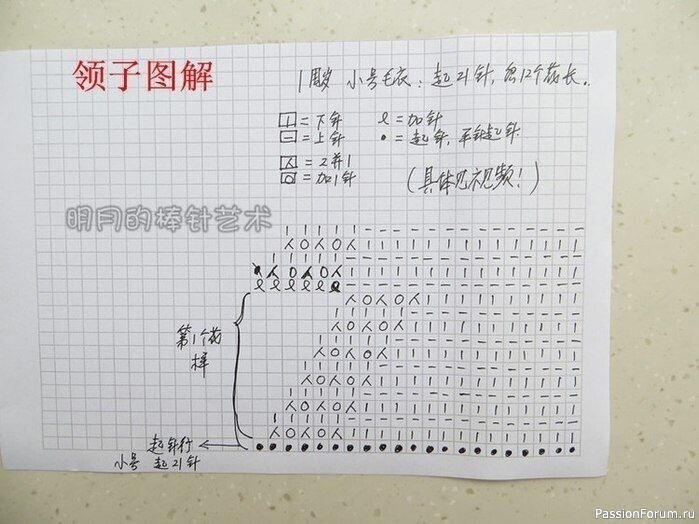 领子图解
1周岁 小号毛衣：起21针，织12个花长.
| = 下针 ℓ = 加针
— = 上针 • = 起针，平针起针.
人 = 2并1
O = 加1针
(具体见视频！)
明月的棒针艺术
第1个花
样
起针行
小号 起21针
PassionForum.ru